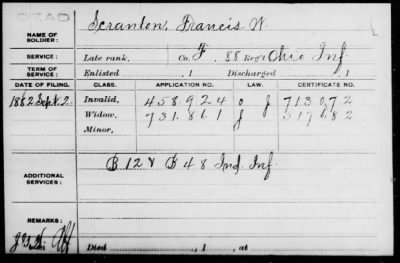 DEAD
NAME OF SOLDIER: Scranton, Francis W.
SERVICE: Late rank, Co. F, 88 Reg't Ohio Inf
TERM OF SERVICE: Enlisted , 1 Discharged , 1
DATE OF FILING. CLASS. APPLICATION NO. LAW. CERTIFICATE NO.
1882 Sept. 2. Invalid, 458.924 713.072
Widow, 731.861 517682
Minor,
ADDITIONAL SERVICES: B 12 & B 48 Ind. Inf.
REMARKS:
Died , 1 , at